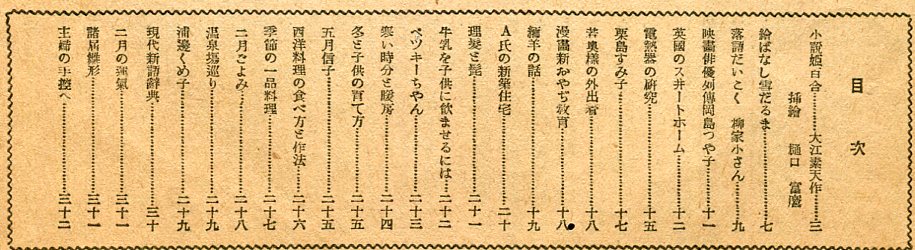 目次
小説姫百合……大江素天作…三
挿繪 樋口富麿
繪ばなし雪だるま……七
落語だいこく 柳家小さん…九
映畫俳優列傳岡島つや子…十一
英國のスヰートホーム……十二
電熱器の研究……十五
栗島すみ子……十七
若奥樣の外出着……十八
漫畫新おやぢ敎育……十八
緬羊の話……十九
A氏の新築住宅……二十
理髮と髭……二十一
牛乳を子供に飲ませるには…二十二
ベツキーちやん……二十三
寒い時分と暖房……二十四
冬と子供の育て方……二十五
五月信子……二十五
西洋料理の食べ方と作法…二十六
季節の一品料理……二十七
二月ごよみ……二十八
溫泉場巡り……二十九
浦邊くめ子……二十九
現代新語辭典……三十
二月の運氣……三十一
諸届雛形……三十一
主婦の手控へ……三十二